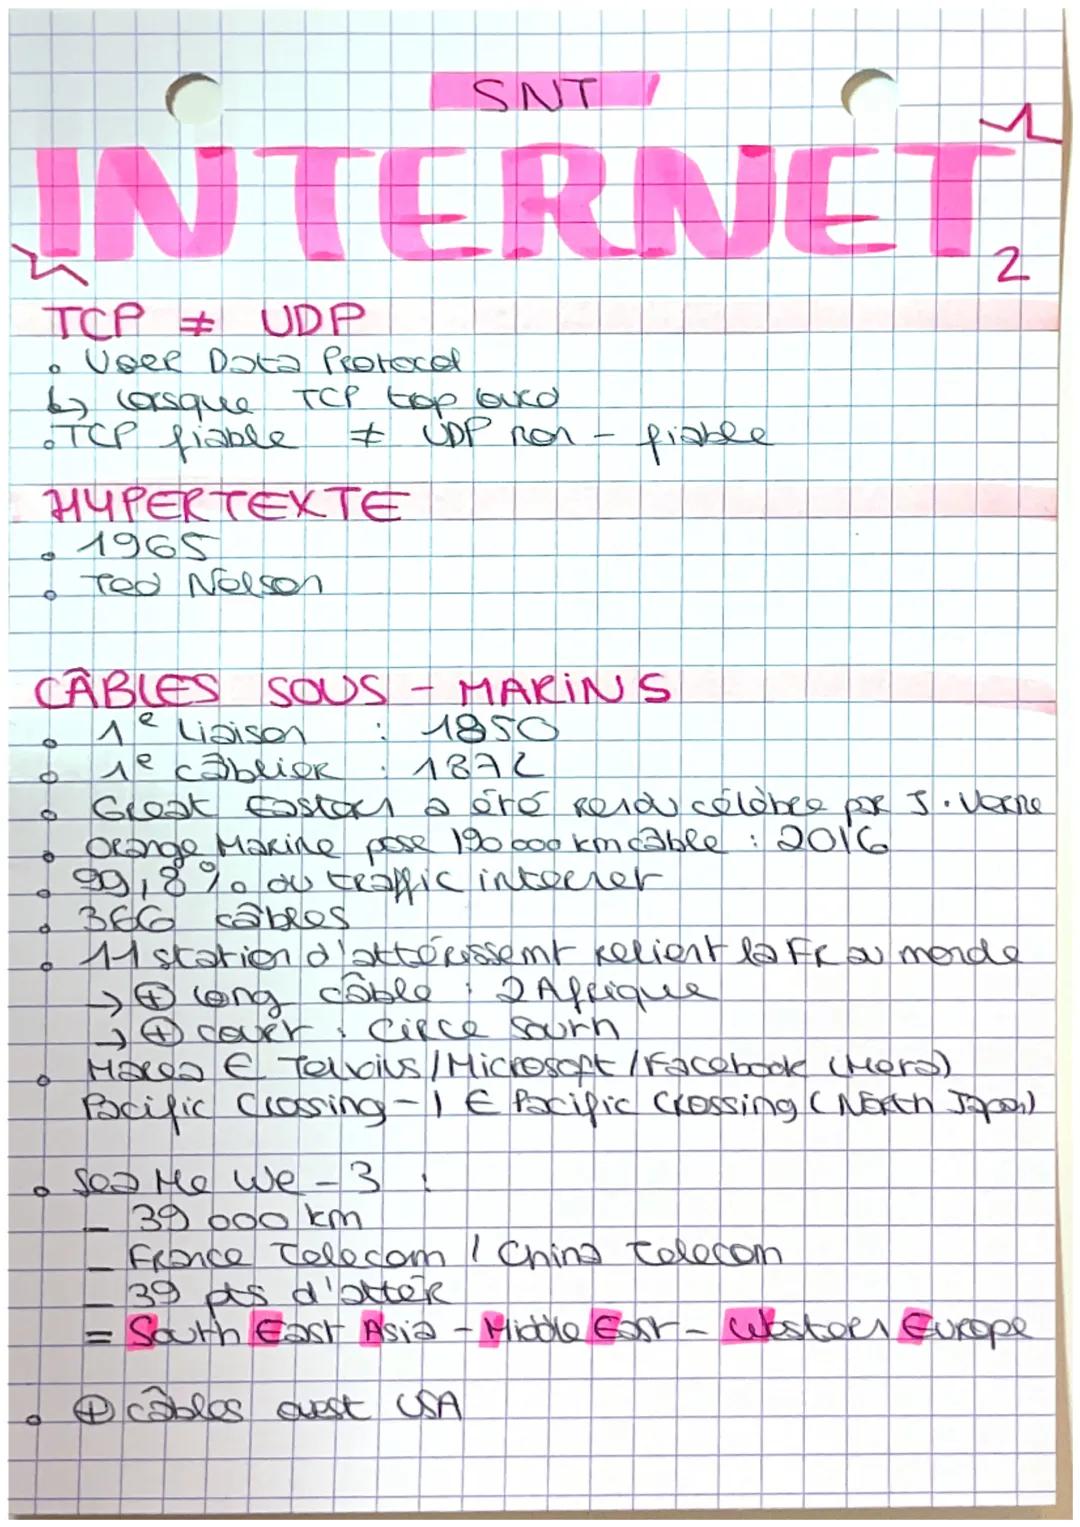 SNT
INTERNET
2
TCP ≠ UDP
• User Data Protocol
↳ lorsque TCP trop lourd
• TCP fiable ≠ UDP non-fiable
HYPERTEXTE
• 1965
• Ted Nelson
CÂBLES SOUS-MARINS
• 1e liaison : 1850
• 1e câblier : 1872
• Great Eastern a été rendu célèbre par J. Verne
• Orange Marine pose 190 000 km câble : 2016
• 99,8% du traffic internet
• 366 câbles
• 11 station d'attérissemt relient la FR au monde
→ ⊕ long câble : 2Afrique
→ ⊕ court : Circe South
• Marea ∈ Telxius/Microsoft/Facebook (Meta)
Pacific Crossing-1 ∈ Pacific Crossing (North Japan)
• Sea Me We-3 :
- 39 000 km
- France Telecom / China Telecom
- 39 pts d'attér
= South East Asia - Middle East - Western Europe
• ⊕ câbles ouest USA